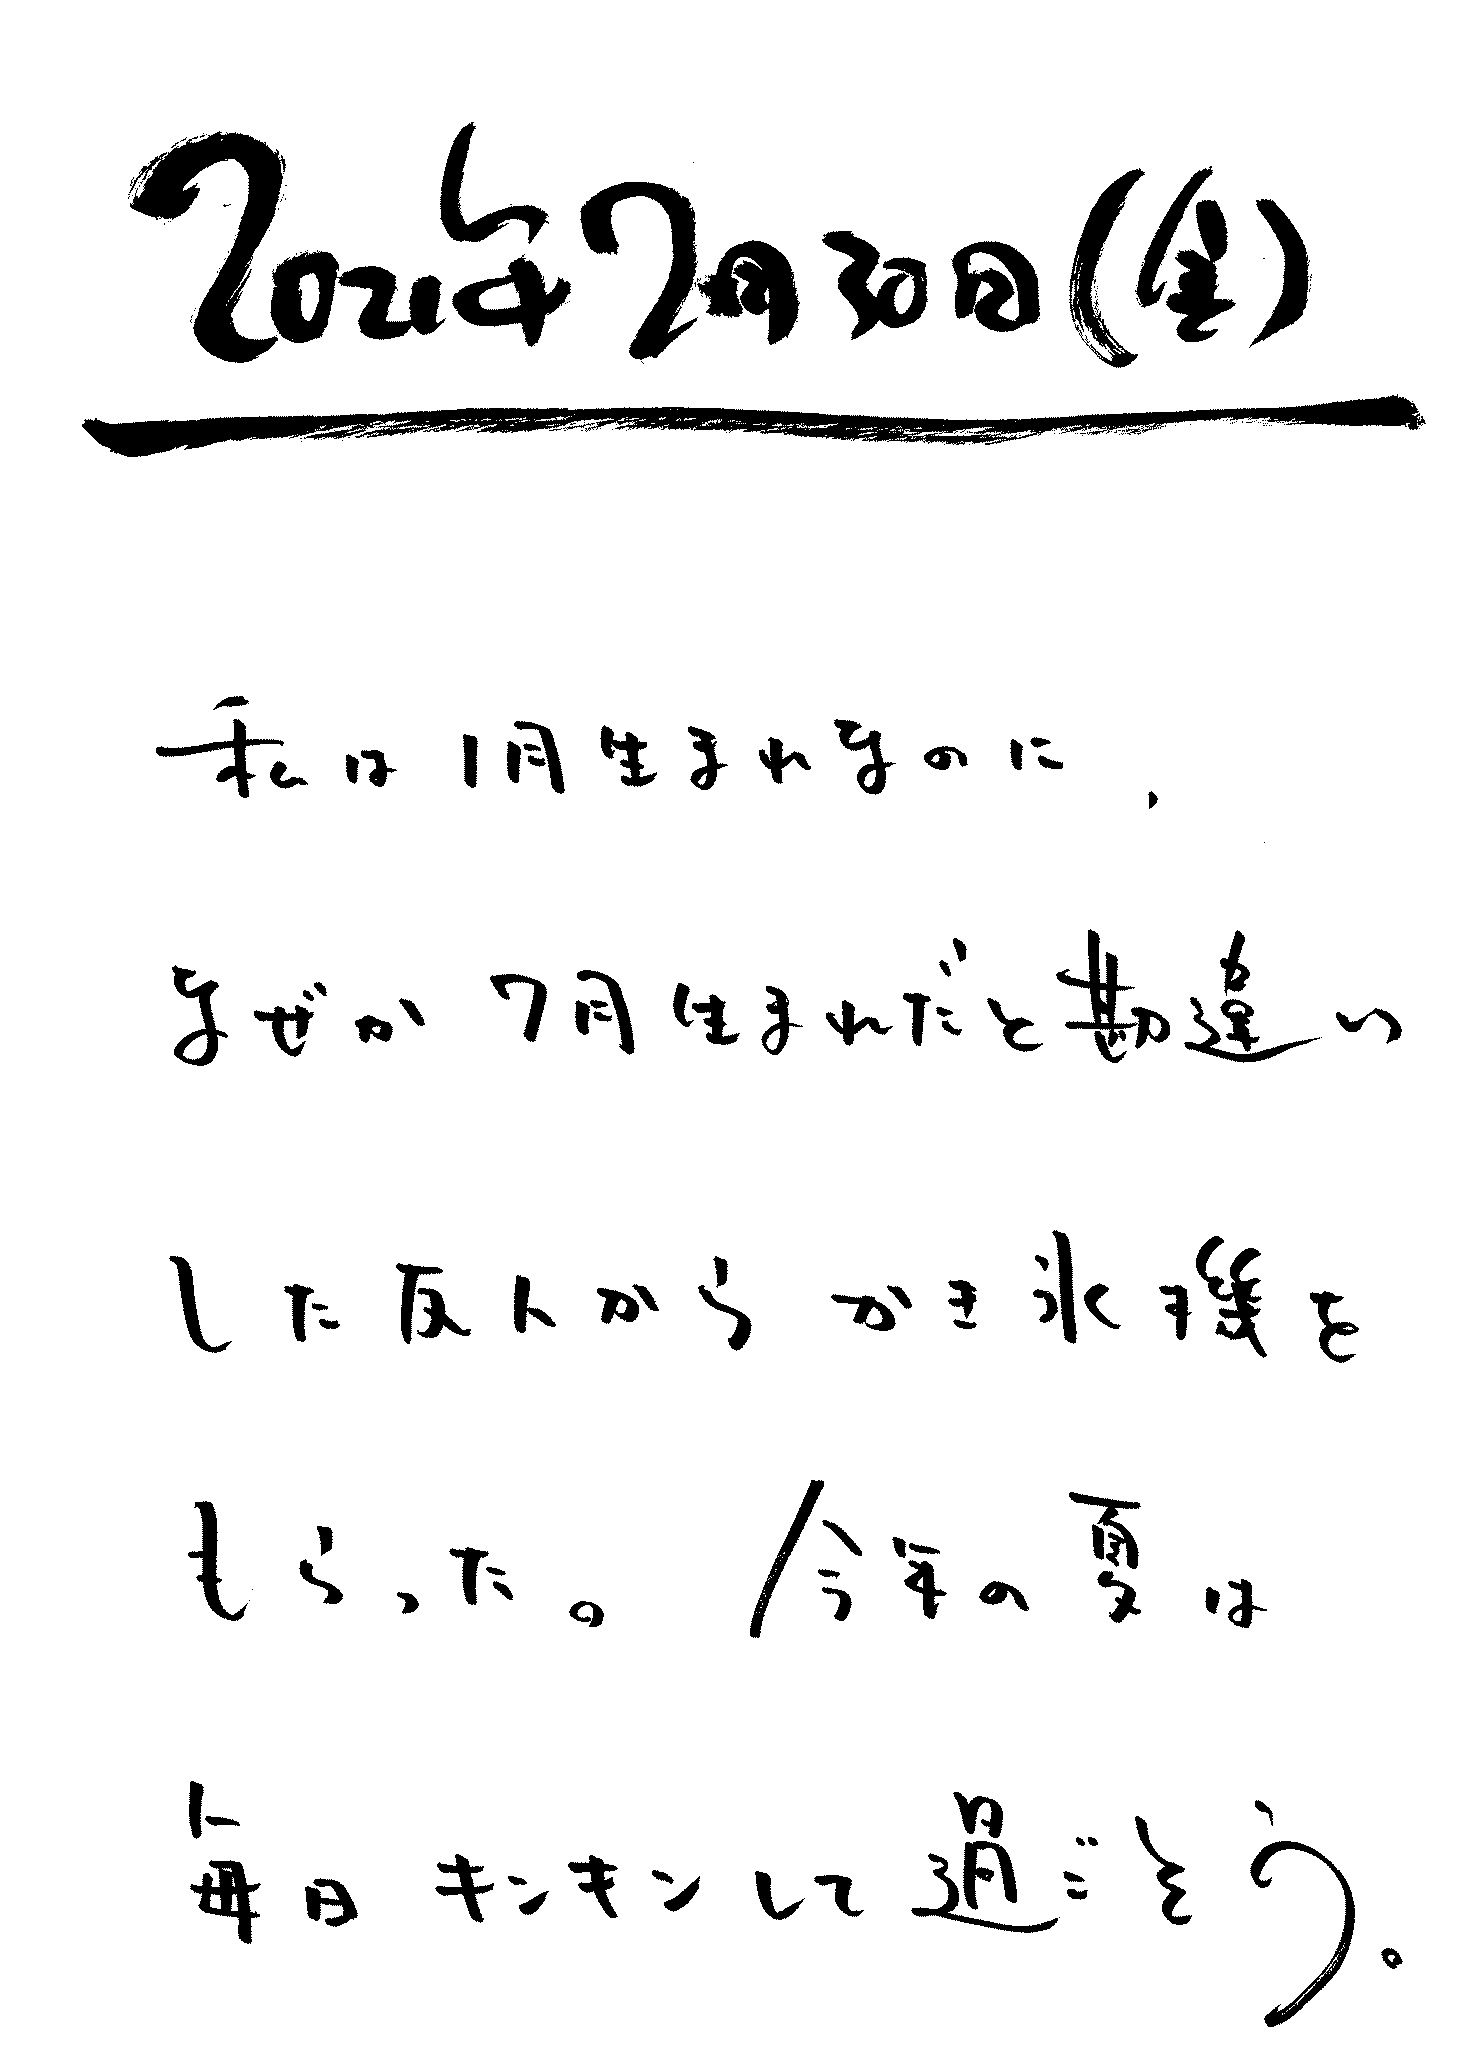 2021年7月30日(金)
私は1月生まれなのに、
なぜか7月生まれだと勘違い
した友人からかき氷機を
もらった。今年の夏は
毎日キンキンして過ごそう。